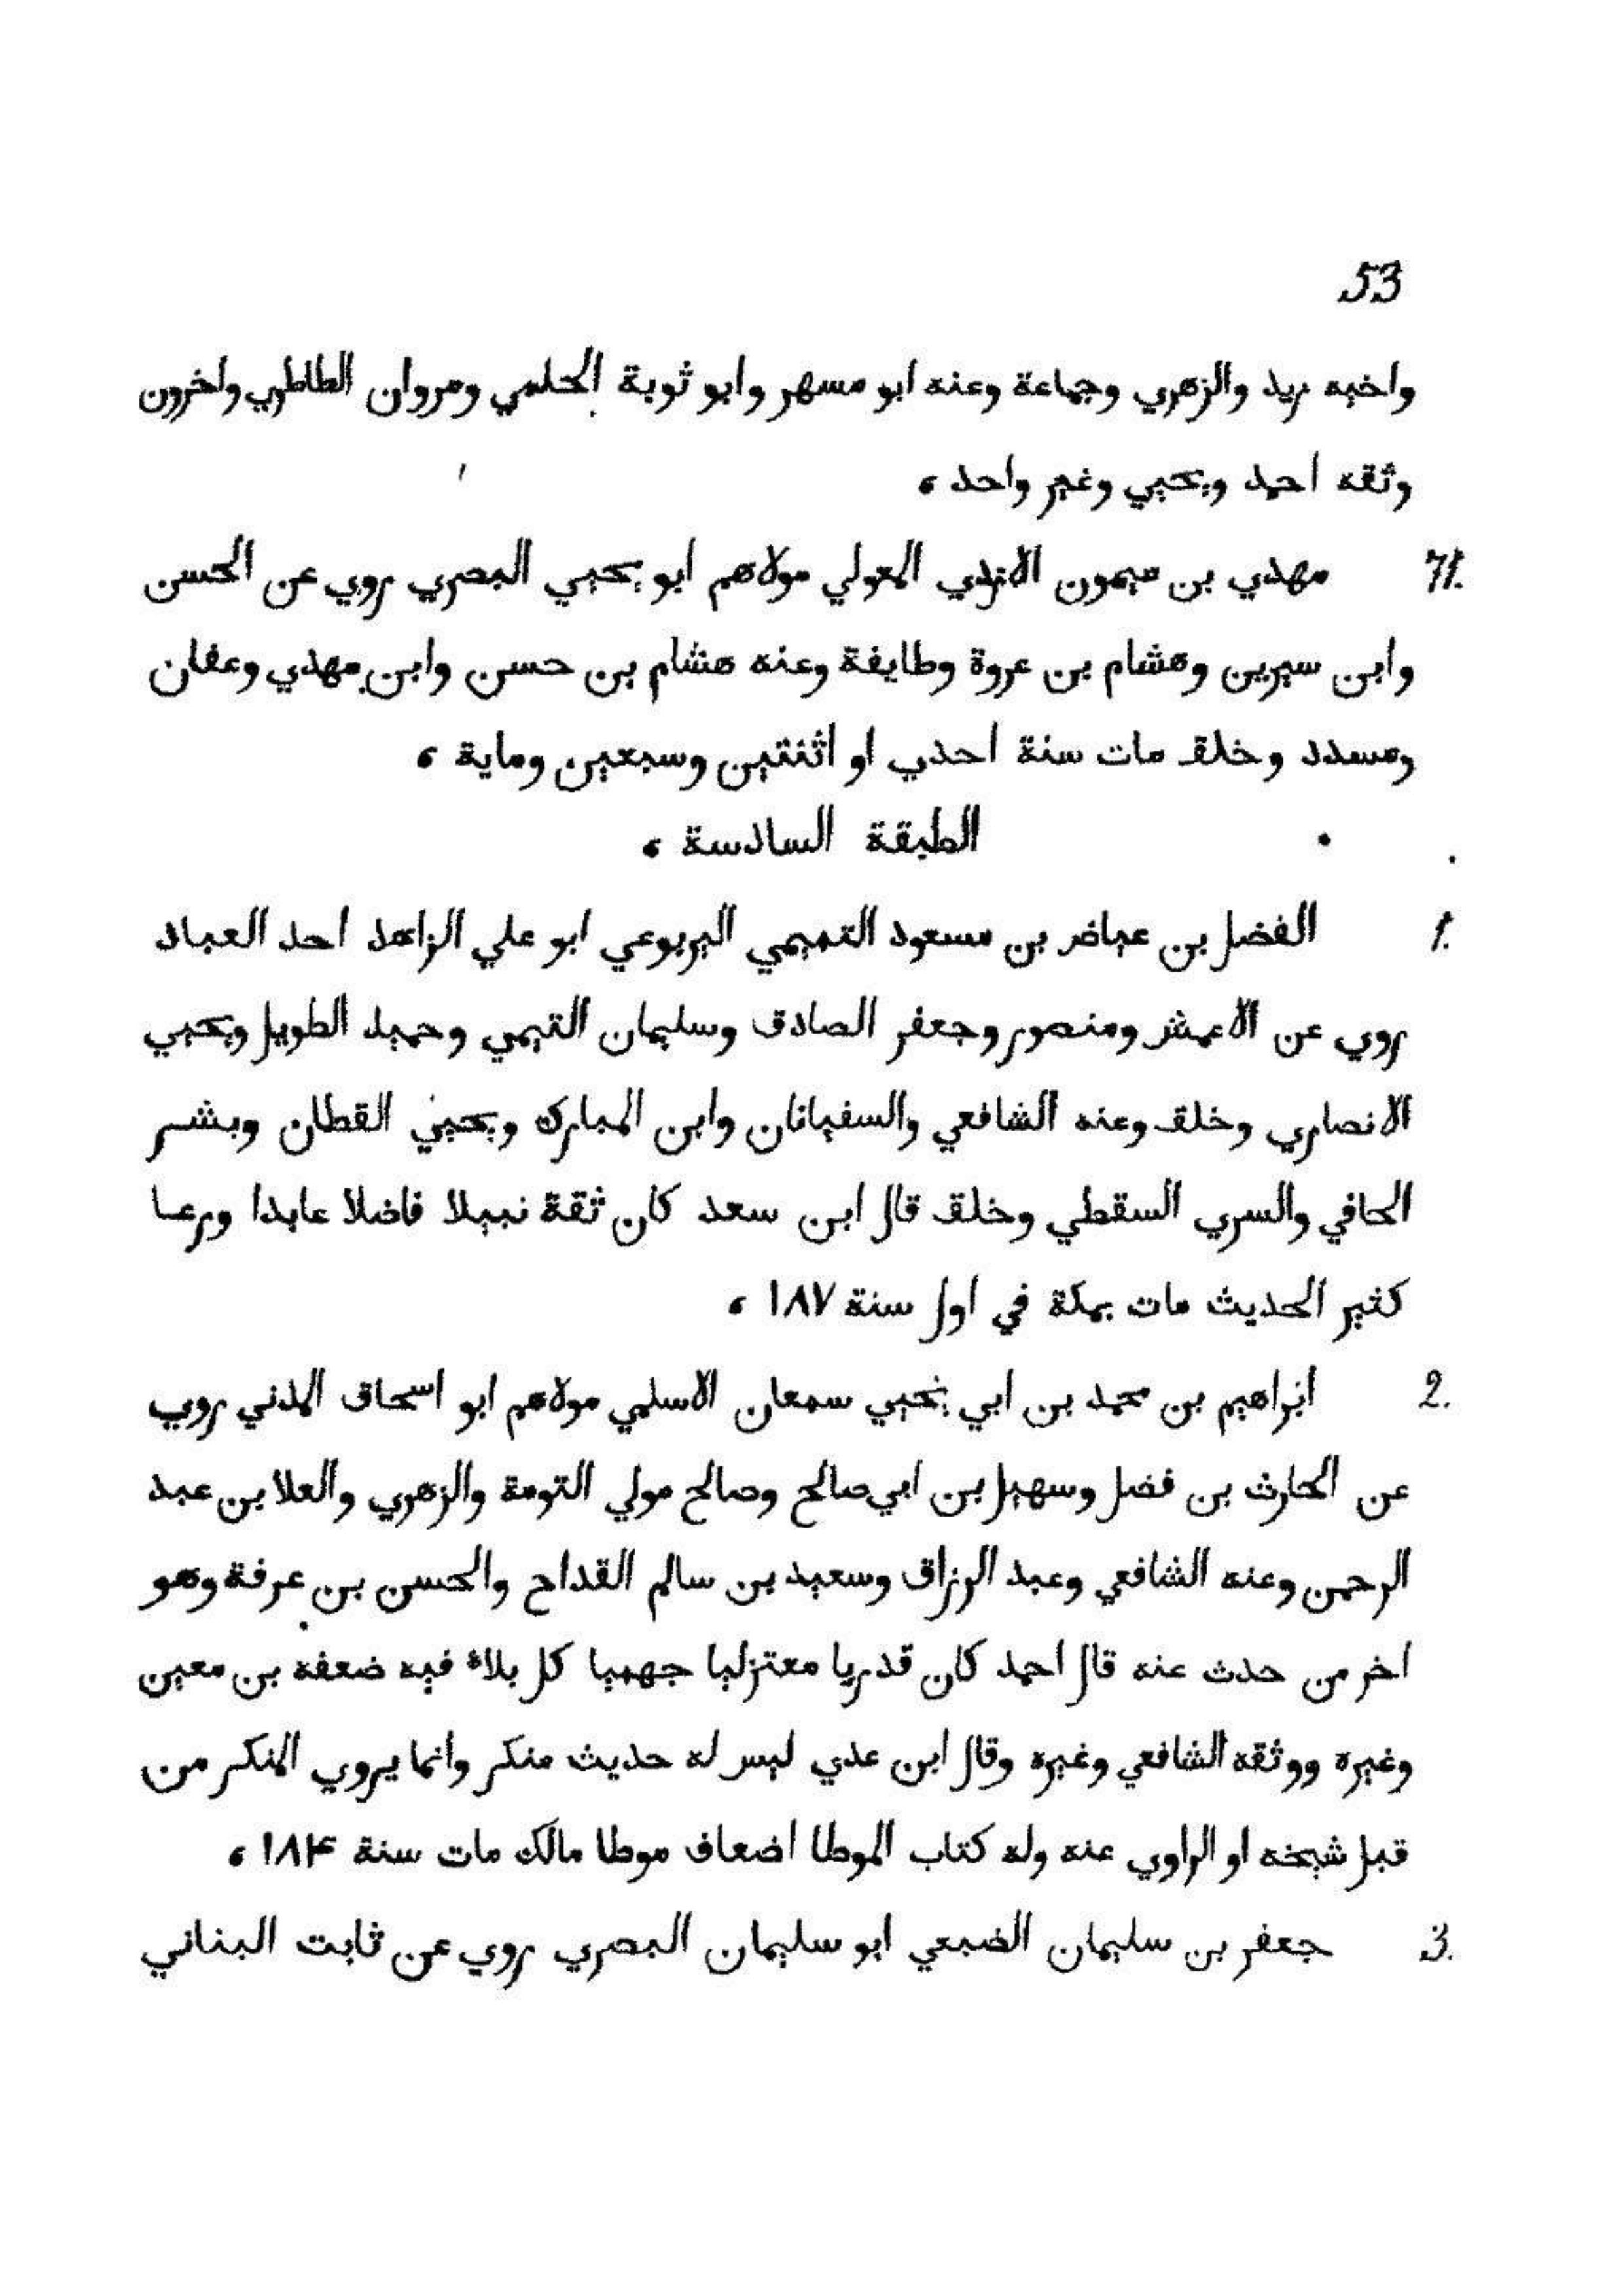 53
واخيه زيد والزهري وجماعة وعنه ابو مسهر وابو ثوبة الحلمي ومروان الطاطري واخرون
وثقه احمد ويحيي وغير واحد ،
71. مهدي بن ميمون الازدي المعولي مولاهم ابو يحيي البصري روي عن الحسن
وابن سيرين وهشام بن عروة وطايفة وعنه هشام بن حسن وابن مهدي وعفان
ومسدد وخلق مات سنة احدي او اثنتين وسبعين وماية ،
الطبقة السادسة ،
1. الفضل بن عياض بن مسعود التميمي اليربوعي ابو علي الزاهد احد العباد
روي عن الاعمش ومنصور وجعفر الصادق وسليمان التيمي وحميد الطويل ويحيي
الانصاري وخلق وعنه الشافعي والسفيانان وابن المبارك ويحيي القطان وبشر
الحافي والسري السقطي وخلق قال ابن سعد كان ثقة نبيلا فاضلا عابدا ورعا
كثير الحديث مات بمكة في اول سنة ١٨٧ ،
2. ابراهيم بن محمد بن ابي يحيي سمعان الاسلمي مولاهم ابو اسحاق المدني روي
عن الحارث بن فضل وسهيل بن ابي صالح وصالح مولي التومة والزهري والعلا بن عبد
الرحمن وعنه الشافعي وعبد الرزاق وسعيد بن سالم القداح والحسن بن عرفة وهو
اخر من حدث عنه قال احمد كان قدريا معتزليا جهميا كل بلاء فيه ضعفه بن معين
وغيره ووثقه الشافعي وغيره وقال ابن عدي ليس له حديث منكر وانما يروي المنكر من
قبل شيخه او الراوي عنه وله كتاب الموطا اضعاف موطا مالك مات سنة ١٨۴ ،
3. جعفر بن سليمان الضبعي ابو سليمان البصري روي عن ثابت البناني